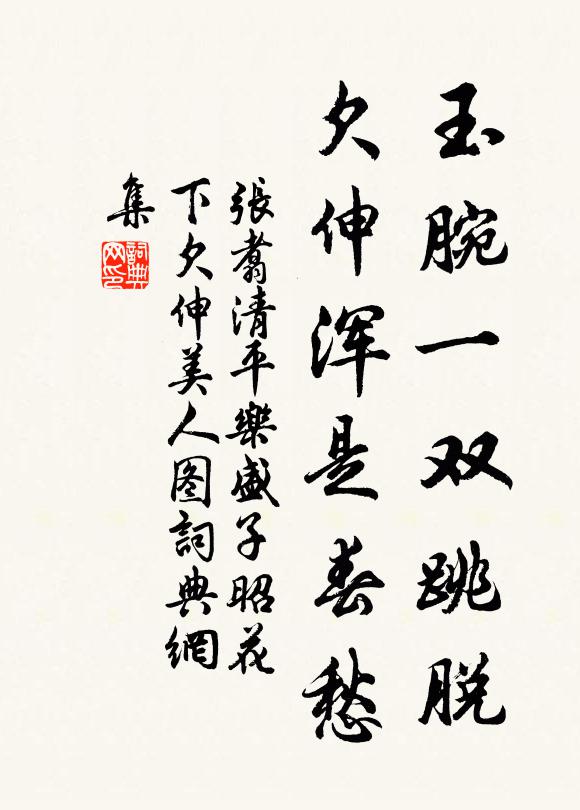 玉腕一双跳脱
欠伸浑是春愁
張翥清平樂盛子昭花
下欠伸美人图詞典網
集
詞典网印